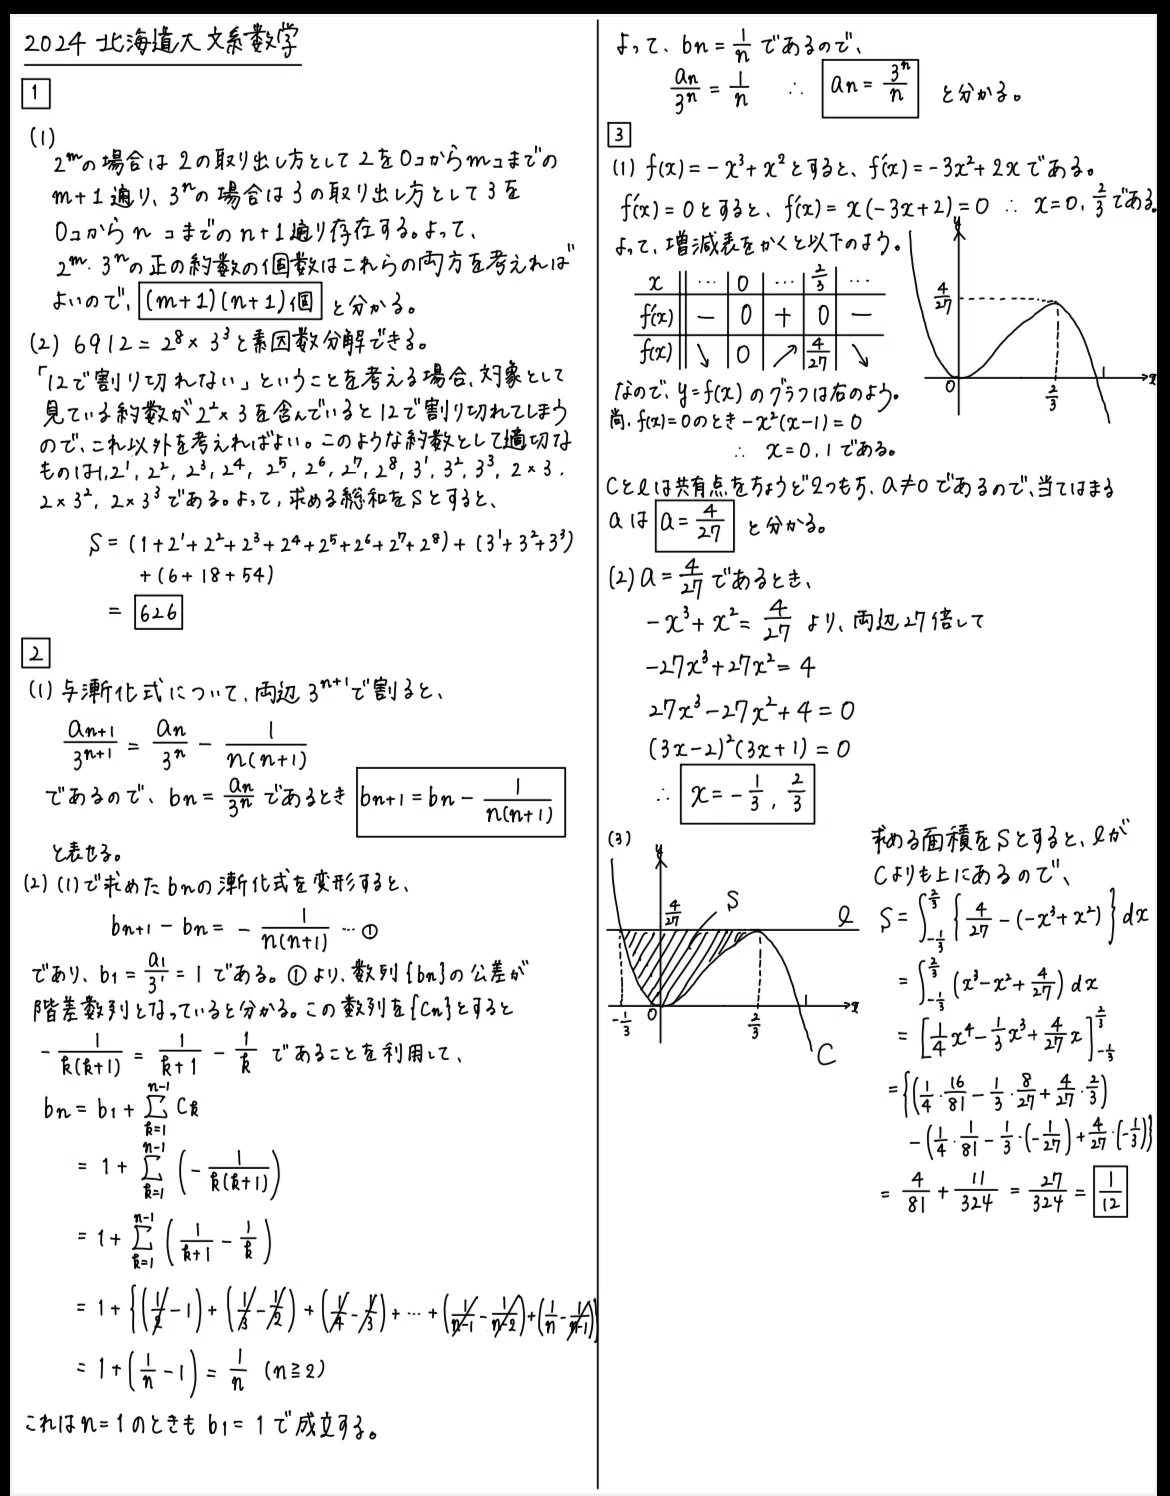 2024 北海道大 文系数学
1
(1)
2^mの場合は2の取り出し方として2を0コからmコまでの
m+1通り、3^nの場合は3の取り出し方として3を
0コからnコまでのn+1通り存在する。よって、
2^m・3^nの正の約数の個数はこれらの両方を考えれば
よいので、(m+1)(n+1)個 と分かる。
(2) 6912=2^8×3^3と素因数分解できる。
「12で割り切れない」ということを考える場合、対象として
見ている約数が2^2×3を含んでいると12で割り切れてしまう
ので、これ以外を考えればよい。このような約数として適切な
ものは1,2^1, 2^2, 2^3, 2^4, 2^5, 2^6, 2^7, 2^8, 3^1, 3^2, 3^3, 2×3,
2×3^2, 2×3^3である。よって、求める総和をSとすると、
S=(1+2^1+2^2+2^3+2^4+2^5+2^6+2^7+2^8)+(3^1+3^2+3^3)
+(6+18+54)
= 626
2
(1) 与漸化式について、両辺3^{n+1}で割ると、
a_{n+1}/3^{n+1} = a_n/3^n − 1/n(n+1)
であるので、b_n=a_n/3^n であるとき b_{n+1}=b_n − 1/n(n+1)
と表せる。
(2) (1)で求めたb_nの漸化式を変形すると、
b_{n+1}−b_n= − 1/n(n+1) … ①
であり、b_1=a_1/3^1=1である。①より、数列{b_n}の公差が
階差数列となっていると分かる。この数列を{C_n}とすると
−1/k(k+1) = 1/k+1 − 1/k であることを利用して、
b_n=b_1+Σ_{k=1}^{n−1} C_k
= 1+Σ_{k=1}^{n−1} (−1/k(k+1))
= 1+Σ_{k=1}^{n−1} (1/k+1 − 1/k)
= 1+{(1/2−1)+(1/3−1/2)+(1/4−1/3)+…+(1/n−1 − 1/n−2)+(1/n − 1/n−1)}
= 1+(1/n−1)=1/n (n≧2)
これはn=1のときもb_1=1で成立する。
よって、b_n=1/n であるので、
a_n/3^n=1/n ∴ a_n=3^n/n と分かる。
3
(1) f(x)=−x^3+x^2とすると、f'(x)=−3x^2+2xである。
f'(x)=0とすると、f'(x)=x(−3x+2)=0 ∴ x=0, 2/3である。
よって、増減表をかくと以下のよう。
x … 0 … 2/3 …
f'(x) − 0 + 0 −
f(x) ↘ 0 ↗ 4/27 ↘
y
4/27
0
2/3
1
x
なので、y=f(x)のグラフは右のよう。
尚、f(x)=0のとき −x^2(x−1)=0
∴ x=0, 1である。
Cとlは共有点をちょうど2つもち、a≠0であるので、当てはまる
aは a=4/27 と分かる。
(2) a=4/27であるとき、
−x^3+x^2=4/27 より、両辺27倍して
−27x^3+27x^2=4
27x^3−27x^2+4=0
(3x−2)^2(3x+1)=0
∴ x=−1/3, 2/3
(3)
y
4/27
S
l
−1/3
0
2/3
1
x
C
求める面積をSとすると、lが
Cよりも上にあるので、
S=∫_{−1/3}^{2/3} {4/27−(−x^3+x^2)}dx
=∫_{−1/3}^{2/3} (x^3−x^2+4/27)dx
=[1/4 x^4−1/3 x^3+4/27 x]_{−1/3}^{2/3}
={(1/4・16/81−1/3・8/27+4/27・2/3)
−(1/4・1/81−1/3・(−1/27)+4/27・(−1/3))}
= 4/81 + 11/324 = 27/324 = 1/12